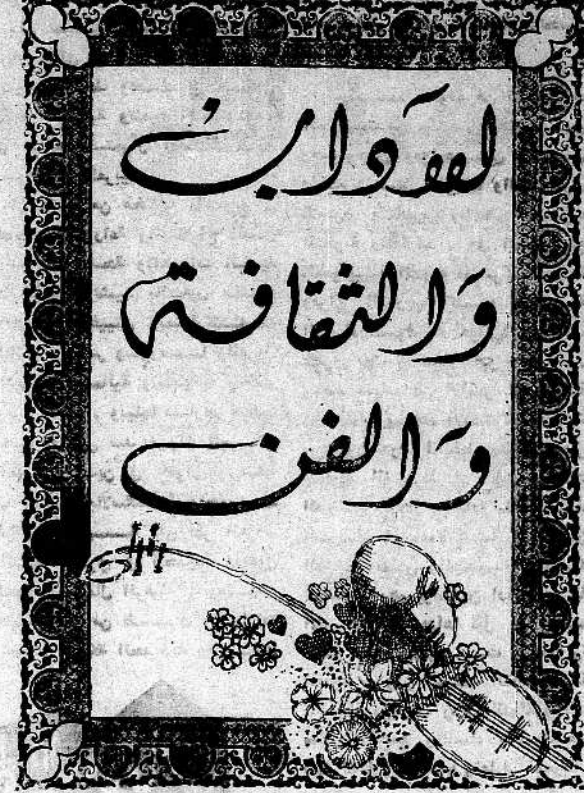 للآداب
وَالثقافة
وَالفن